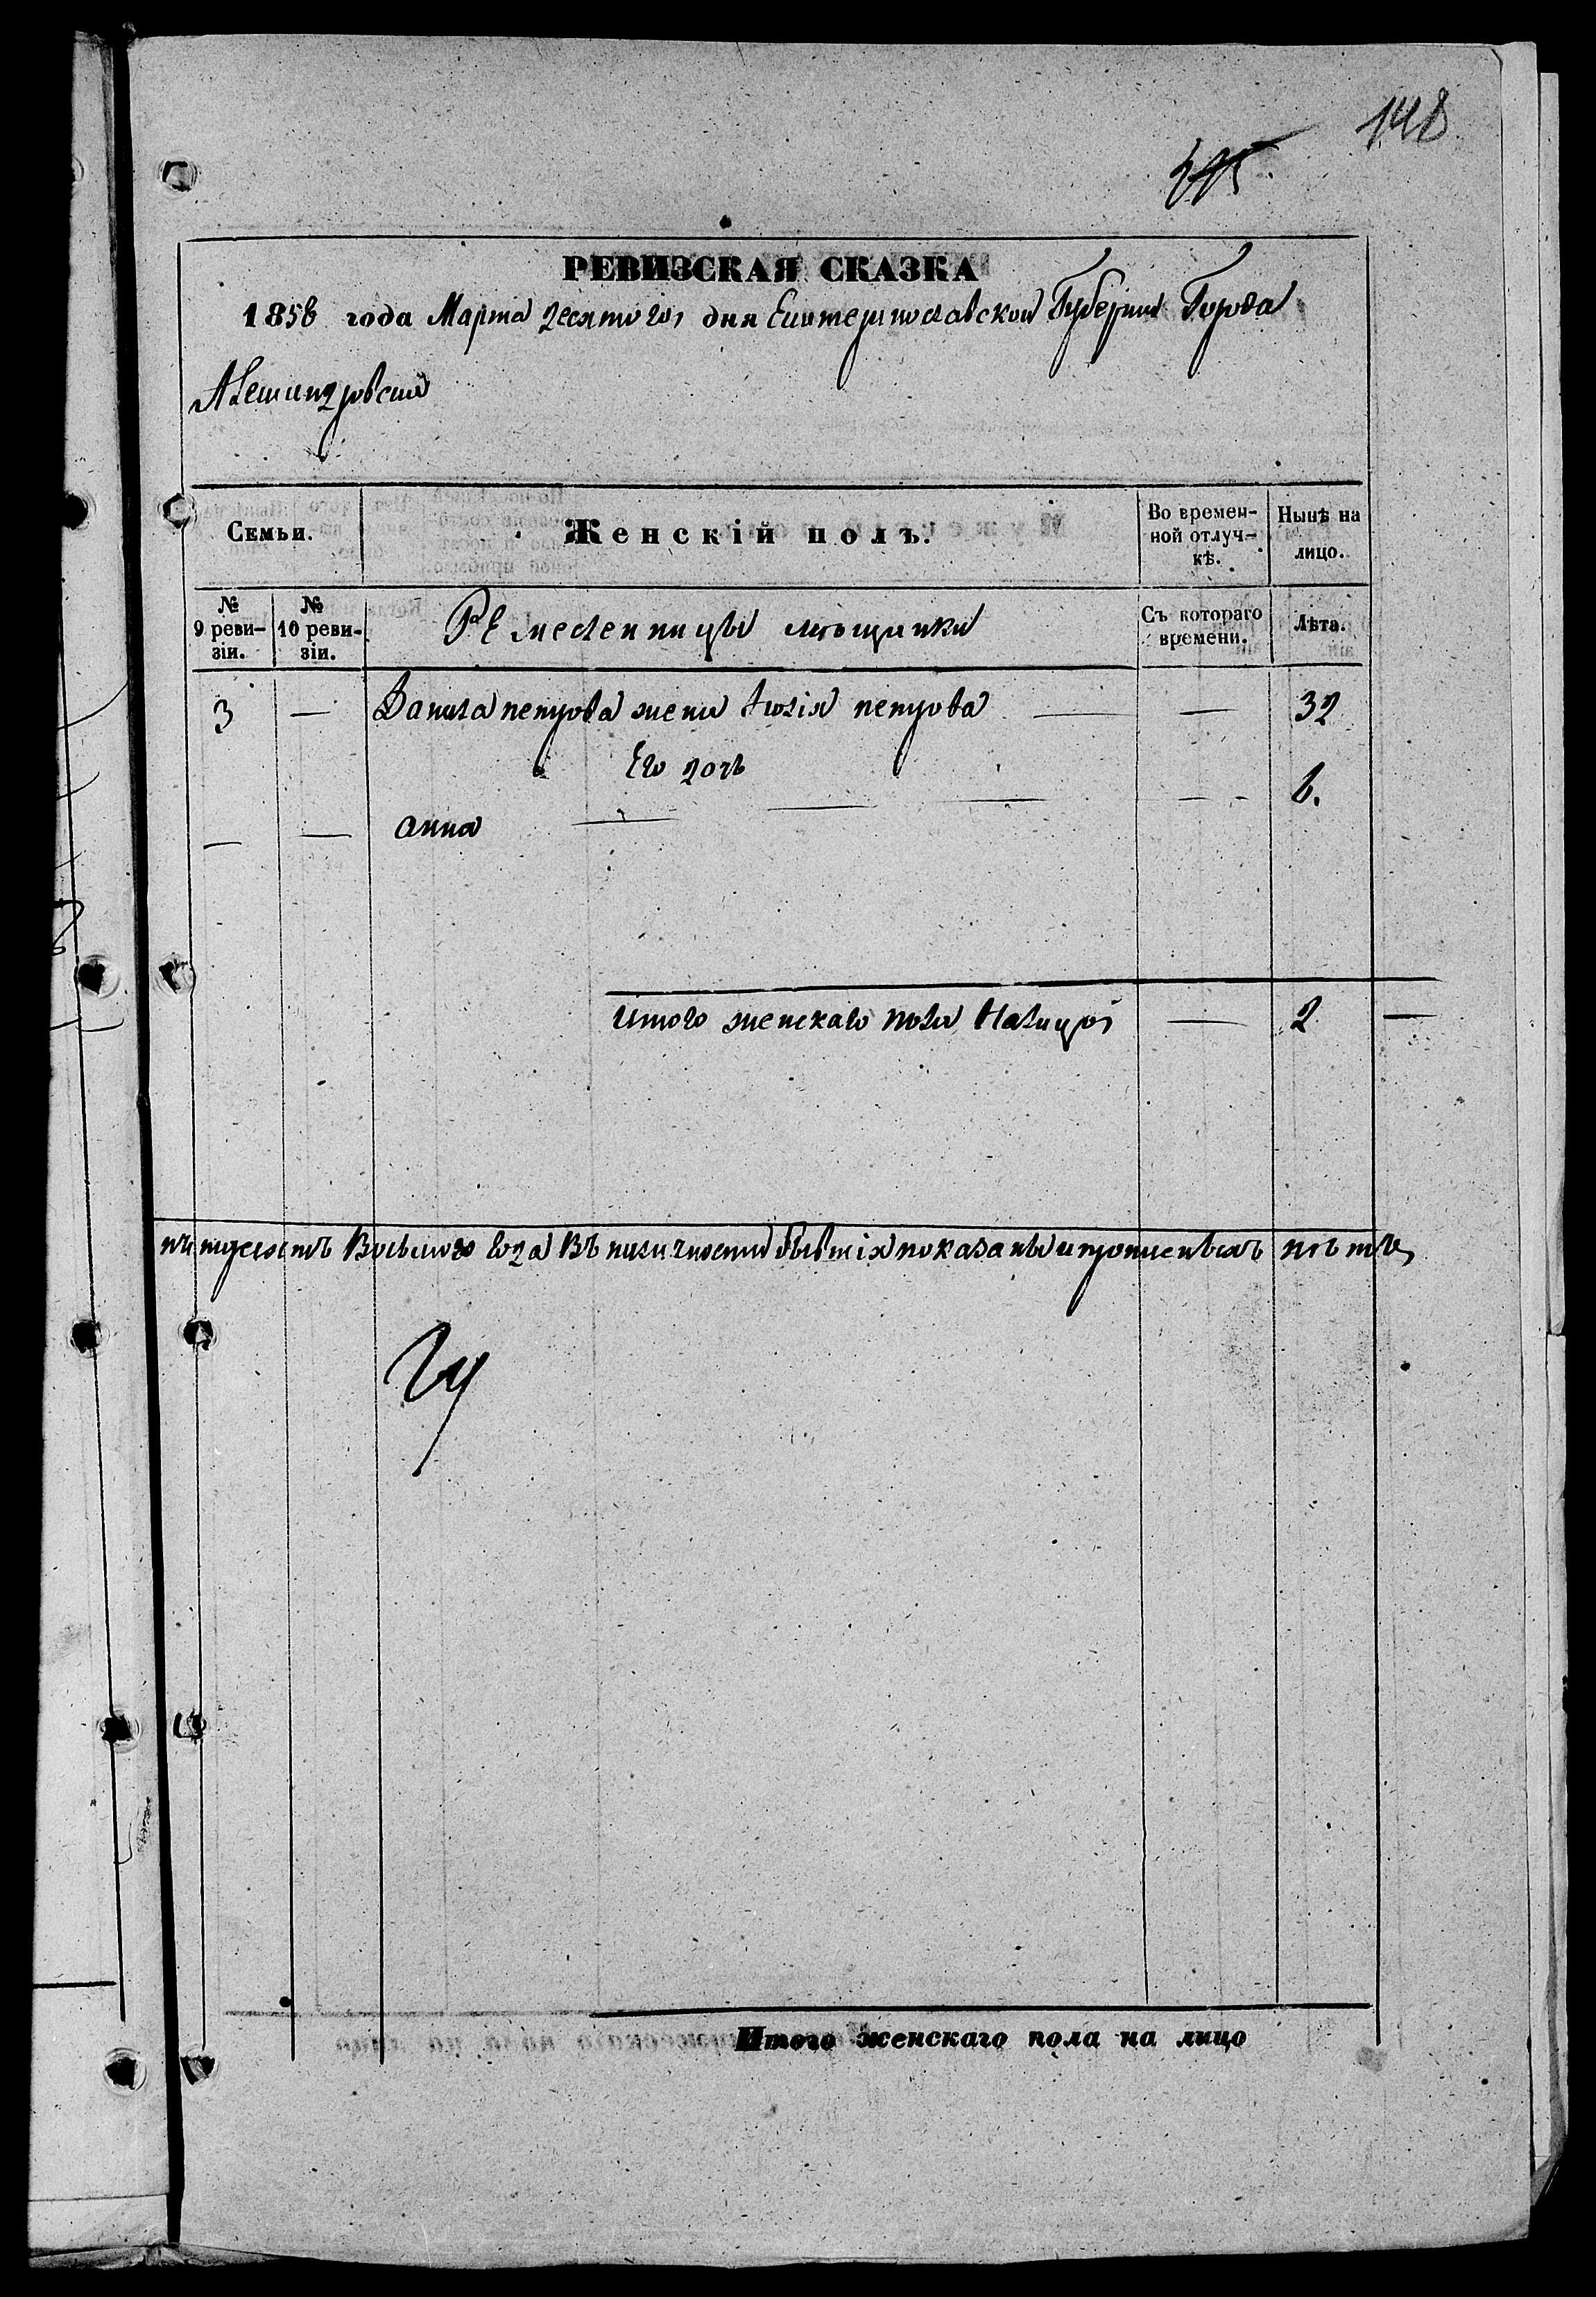 148
РЕВИЗСКАЯ СКАЗКА
1858 года Марта десятого дня Екатеринославской Губернии Города
Александровска
Семьи.
Женскій полъ.
Во времен-
ной отлуч-
кѣ.
Нынѣ на
лицо.
№
9 реви-
зіи.
№
10 реви-
зіи.
Ремесленницы мѣщанки
Съ котораго
времени.
Лѣта.
3 — Данила петрова жена Юлія петрова — — 32
Его дочь
— — анна — — — 6.
Итого женскаго пола налицо — 2 —
пятдесятъ Восьмого года Въ наличности бывшія показаны и прописныхъ нѣтъ
Итого женскаго пола на лицо